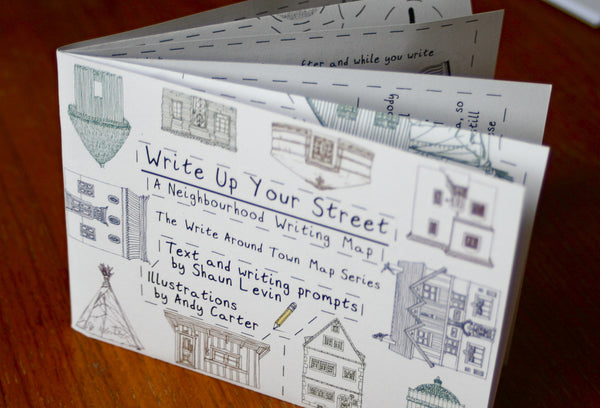 fter and while you write
body
, so
till
se
Write Up Your Street
A Neighbourhood Writing Map
The Write Around Town Map Series
Text and writing prompts
by Shaun Levin
Illustrations
by Andy Carter